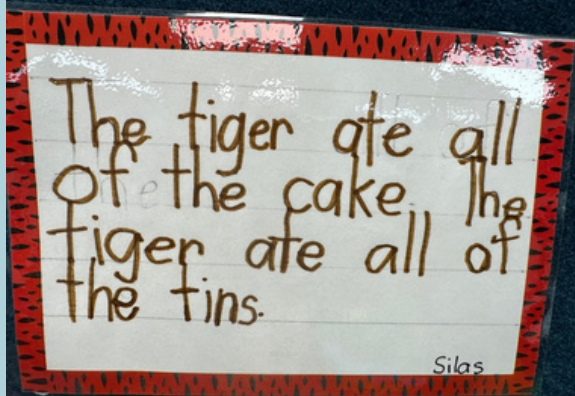 The tiger ate all
of the cake. The
tiger ate all of
the tins.
Silas